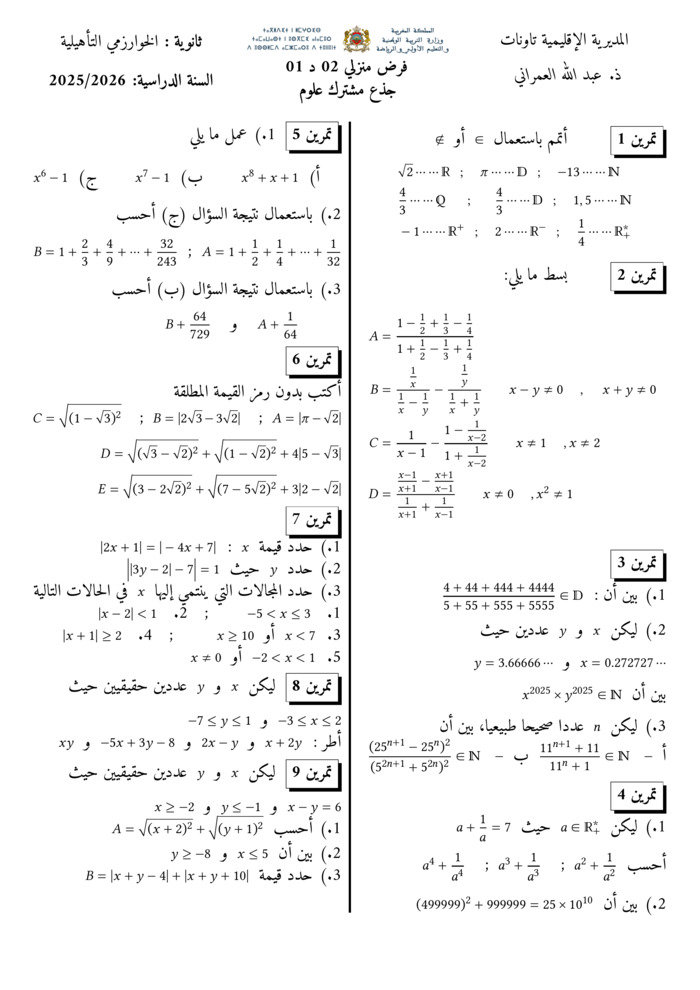 المديرية الإقليمية تاونات
ذ. عبد الله العمراني
المملكة المغربية
وزارة التربية الوطنية
والتعليم الأولي والرياضة
فرض منزلي 02 د 01
جذع مشترك علوم
ثانوية : الخوارزمي التأهيلية
السنة الدراسية: 2025/2026
تمرين 1 أتمم باستعمال ∈ أو ∉
√2 ⋯⋯ ℝ ; π ⋯⋯ 𝔻 ; −13 ⋯⋯ ℕ
4/3 ⋯⋯ ℚ ; 4/3 ⋯⋯ 𝔻 ; 1,5 ⋯⋯ ℕ
−1 ⋯⋯ ℝ⁺ ; 2 ⋯⋯ ℝ⁻ ; 1/4 ⋯⋯ ℝ₊*
تمرين 2 بسط ما يلي:
A = (1 − 1/2 + 1/3 − 1/4) / (1 + 1/2 − 1/3 + 1/4)
B = (1/x) / (1/x − 1/y) − (1/y) / (1/x + 1/y) x − y ≠ 0 , x + y ≠ 0
C = 1/(x − 1) − (1 − 1/(x−2)) / (1 + 1/(x−2)) x ≠ 1 , x ≠ 2
D = ((x−1)/(x+1) − (x+1)/(x−1)) / (1/(x+1) + 1/(x−1)) x ≠ 0 , x² ≠ 1
تمرين 3
1.) بين أن : (4 + 44 + 444 + 4444) / (5 + 55 + 555 + 5555) ∈ 𝔻
2.) ليكن x و y عددين حيث
x = 0.272727⋯ و y = 3.66666⋯
بين أن x²⁰²⁵ × y²⁰²⁵ ∈ ℕ
3.) ليكن n عددا صحيحا طبيعيا، بين أن
أ − (11ⁿ⁺¹ + 11) / (11ⁿ + 1) ∈ ℕ ب − (25ⁿ⁺¹ − 25ⁿ)² / (5²ⁿ⁺¹ + 5²ⁿ)² ∈ ℕ
تمرين 4
1.) ليكن a ∈ ℝ₊* حيث a + 1/a = 7
أحسب a² + 1/a² ; a³ + 1/a³ ; a⁴ + 1/a⁴
2.) بين أن (499999)² + 999999 = 25 × 10¹⁰
تمرين 5 1.) عمل ما يلي
أ) x⁸ + x + 1 ب) x⁷ − 1 ج) x⁶ − 1
2.) باستعمال نتيجة السؤال (ج) أحسب
A = 1 + 1/2 + 1/4 + ⋯ + 1/32 ; B = 1 + 2/3 + 4/9 + ⋯ + 32/243
3.) باستعمال نتيجة السؤال (ب) أحسب
A + 1/64 و B + 64/729
تمرين 6
أكتب بدون رمز القيمة المطلقة
A = |π − √2| ; B = |2√3 − 3√2| ; C = √((1 − √3)²)
D = √((√3 − √2)²) + √((1 − √2)²) + 4|5 − √3|
E = √((3 − 2√2)²) + √((7 − 5√2)²) + 3|2 − √2|
تمرين 7
1.) حدد قيمة x : |2x + 1| = |−4x + 7|
2.) حدد y حيث ||3y − 2| − 7| = 1
3.) حدد المجالات التي ينتمي إليها x في الحالات التالية
1. −5 < x ≤ 3 ; 2. |x − 2| < 1
3. x < 7 أو x ≥ 10 ; 4. |x + 1| ≥ 2
5. −2 < x < 1 أو x ≠ 0
تمرين 8 ليكن x و y عددين حقيقيين حيث
−3 ≤ x ≤ 2 و −7 ≤ y ≤ 1
أطر : x + 2y و 2x − y و −5x + 3y − 8 و xy
تمرين 9 ليكن x و y عددين حقيقيين حيث
x − y = 6 و y ≤ −1 و x ≥ −2
1.) أحسب A = √((x + 2)²) + √((y + 1)²)
2.) بين أن x ≤ 5 و y ≥ −8
3.) حدد قيمة B = |x + y − 4| + |x + y + 10|